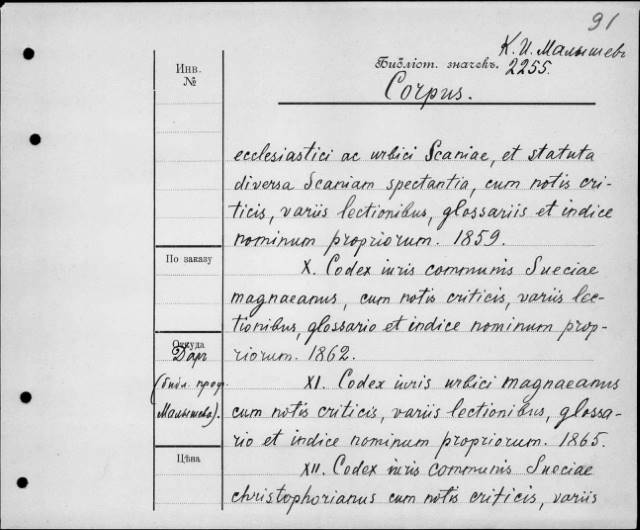 91
К. И. Малышевъ
Библіот. значекъ. 2255.
Corpus.
Инв.
№
ecclesiastici ac urbici Scaniae, et statuta
diversa Scaniam spectantia, cum notis cri-
ticis, variis lectionibus, glossariis et indice
nominum propriorum. 1859.
По заказу
X. Codex iuris communis Sueciae
magnaeanus, cum notis criticis, variis lec-
tionibus, glossario et indice nominum prop-
riorum. 1862.
Откуда
Даръ
(библ. проф.
Малышева).
XI. Codex iuris urbici magnaeanus
cum notis criticis, variis lectionibus, glossa-
rio et indice nominum propriorum. 1865.
Цѣна
XII. Codex iuris communis Sueciae
christophorianus cum notis criticis, variis